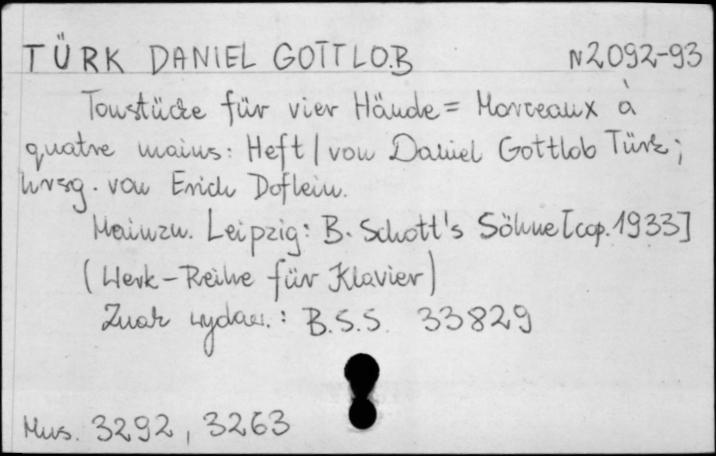 TÜRK DANIEL GOTTLOB N2092-93
Tonstücke für vier Hände = Morceaux à
quatre mains: Heft / von Daniel Gottlob Türk;
hrsg. von Erich Doflein.
Mainz u. Leipzig: B. Schott's Söhne [cop. 1933]
(Werk-Reihe für Klavier)
Znak wydaw.: B.S.S. 33829
Mus. 3292, 3263